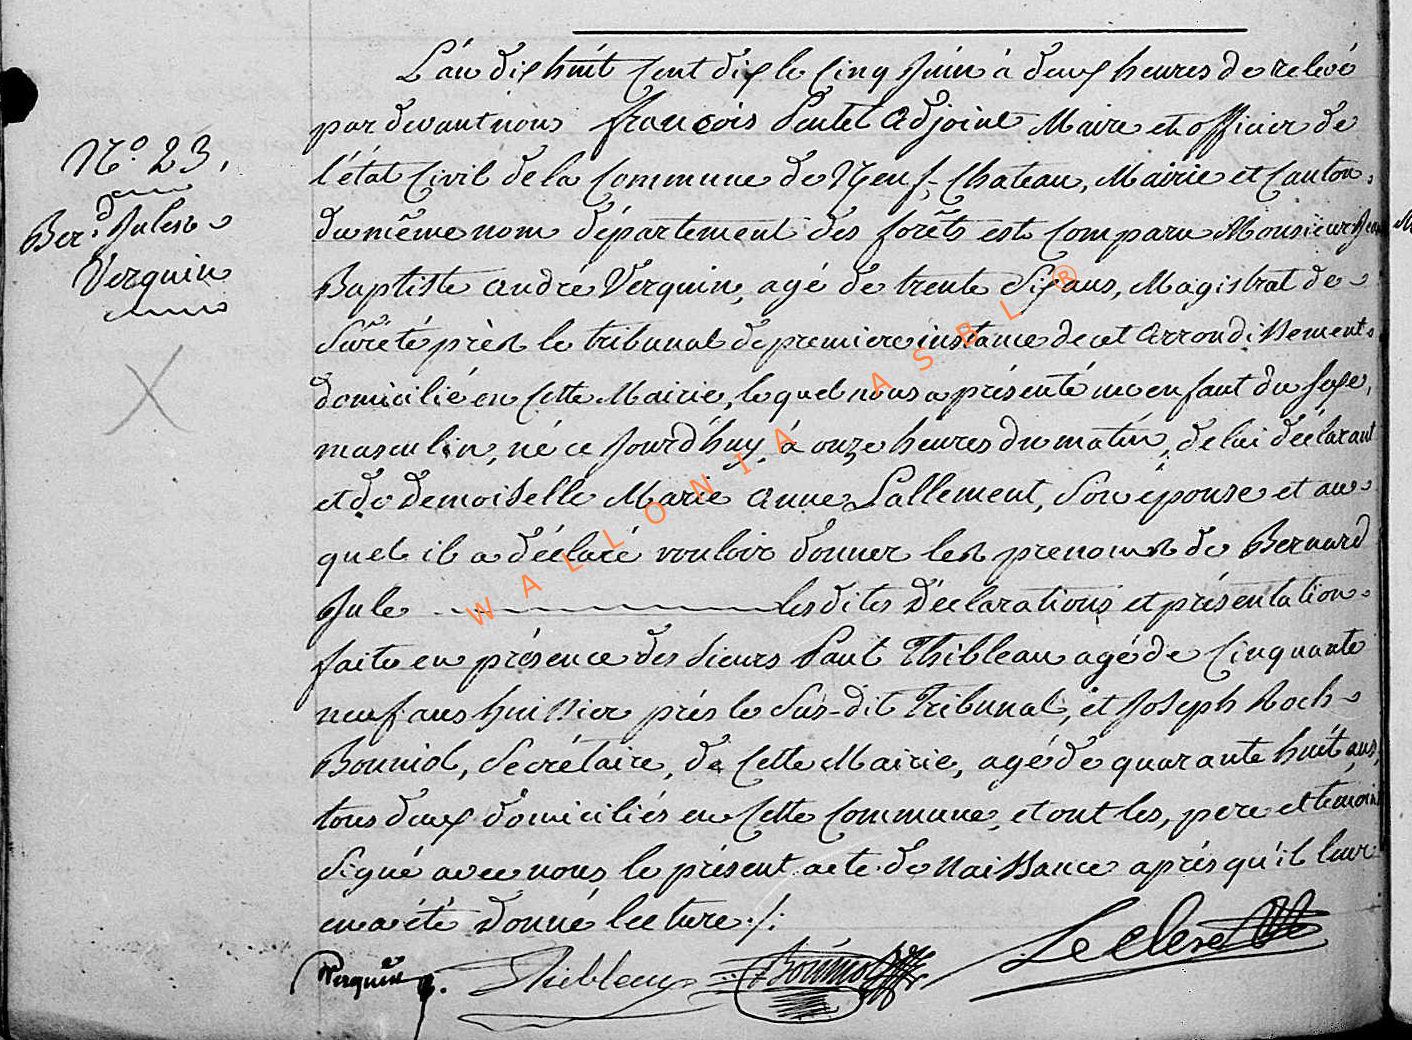 L'an dix huit Cent dix le Cinq Juin à deux heures de relevé
par devant nous françois Adjoint Maire et officier de
N.o 23,
l'état Civil de la Commune de Neuf-Chateau, Mairie et Canton
Ber.d Jules
du même nom département des forêts est Comparu Monsieur Jean
Verquin
Baptiste andré Verquin, agé de trente Six ans, Magistrat de
Sûreté près le tribunal de premiere instance de cet Arrondissement
domicilié en Cette Mairie, lequel nous a présenté un enfant du sexe,
masculin, né ce Jourd'huy, à onze heures du matin, de lui déclarant
et de demoiselle Marie Anne Lallement, Son épouse et au
quel il a déclaré vouloir donner les prenoms de Bernard
Jule lesdites déclarations et présentation
faite en présence des Sieurs Paul Thibleau agé de Cinquante
neuf ans huissier près le Sus-dit Tribunal, et Joseph Roch
Bouniol, Secrétaire, de Cette Mairie, agé de quarante huit ans,
tous deux domiciliés en Cette Commune, et ont les, pere et temoins
Signé avec nous le présent acte de Naissance après qu'il leur
en a été donné lecture ./.
Verquin Thibleau Bouniol Leclerc
WALLONIA ASBL ®